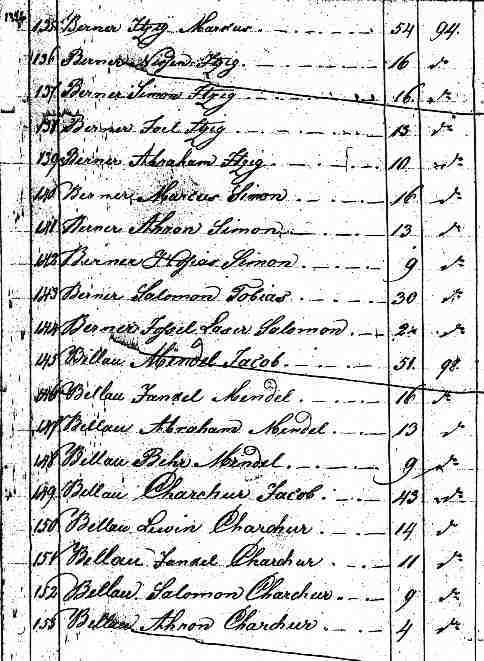 135 Berner Itzig Marcus 54 94.
136 Berner Itzig. 16 do
137 Berner Simon Itzig 16 do
138 Berner Joel Itzig 13 do
139 Berner Abraham Itzig 10 do
140 Berner Marcus Simon 16 do
141 Berner Ahron Simon 13 do
142 Berner Simon 9 do
143 Berner Salomon Tobias 30 do
144 Berner Jossel Laser Salomon do
145 Bellau Mendel Jacob 51 98.
146 Bellau Jankel Mendel 16 do
147 Bellau Abraham Mendel 13 do
148 Bellau Behr Mendel 9 do
149 Bellau Charchur Jacob 43 do
150 Bellau Lewin Charchur 14 do
151 Bellau Jankel Charchur 11 do
152 Bellau Salomon Charchur 9 do
153 Bellau Ahron Charchur 4 do